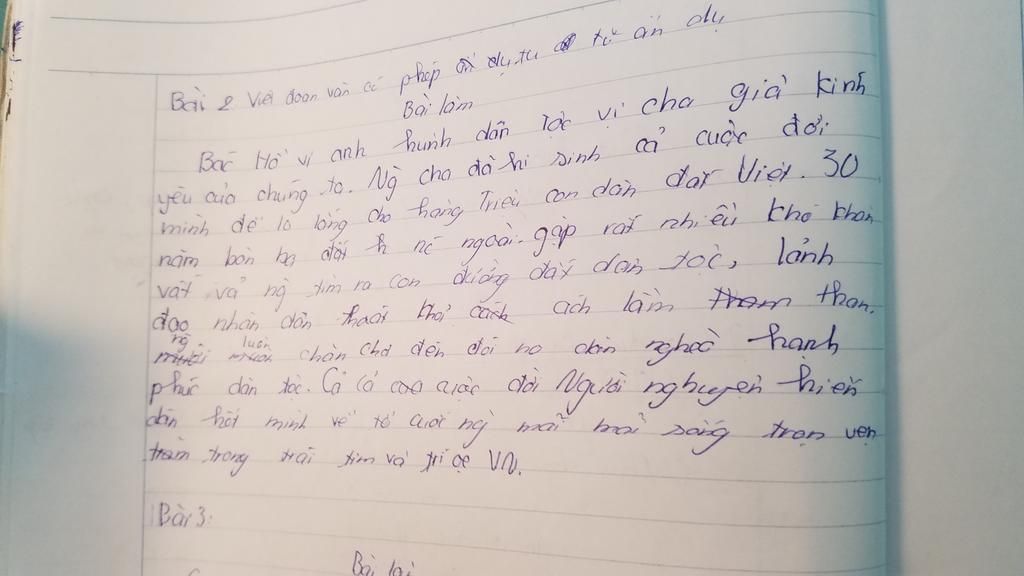 Bài 2 Viết đoan văn có phép ẩn dụ tu từ ẩn dụ
Bài làm
Bác Hồ vị anh hunh dân tộc vị cha già kinh
yêu của chúng ta. Ng cha đã hi sinh cả cuộc đời
mình để lo lắng cho hàng Triệu con dân đất Việt. 30
năm bôn ba ngoài. gặp rất nhiều khó khăn
vất vả ng tìm ra con đường dân tộc, lãnh
đạo nhân dân thoát khỏi ách lầm than.
ng luôn chăn chở đến đói no dân nghèo hạnh
phúc dân tộc. Cả cuộc đời Người nguyện hiến
dân hết mình về tổ ng mãi mãi sáng trọn vẹn
trong trái tim và trí VN.
Bài 3:
Bài